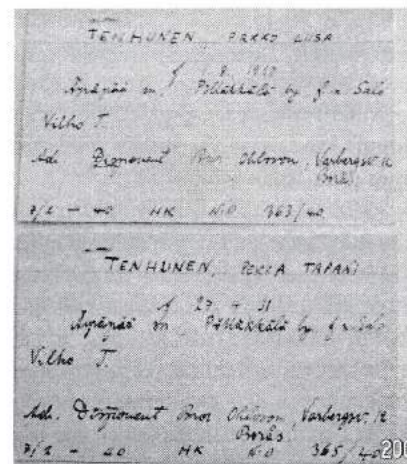 TENHUNEN, PRKKO LIISA
f 1 9 1940
Äyräpää sn, Pölläkkälä by f n Salo
Vilho T.
Ad. Disponent Bror Ohlsson, Varbergsv. 12
Borås
7/2 - 40 HK N:O 363/40
TENHUNEN, PEKKA TAPANI
f 27 4 31
Äyräpää sn, Pölläkkälä by f n Salo
Vilho T.
Ad. Disponent Bror Ohlsson, Varbergsv. 12
Borås
7/2 - 40 HK N:O 365/40
200